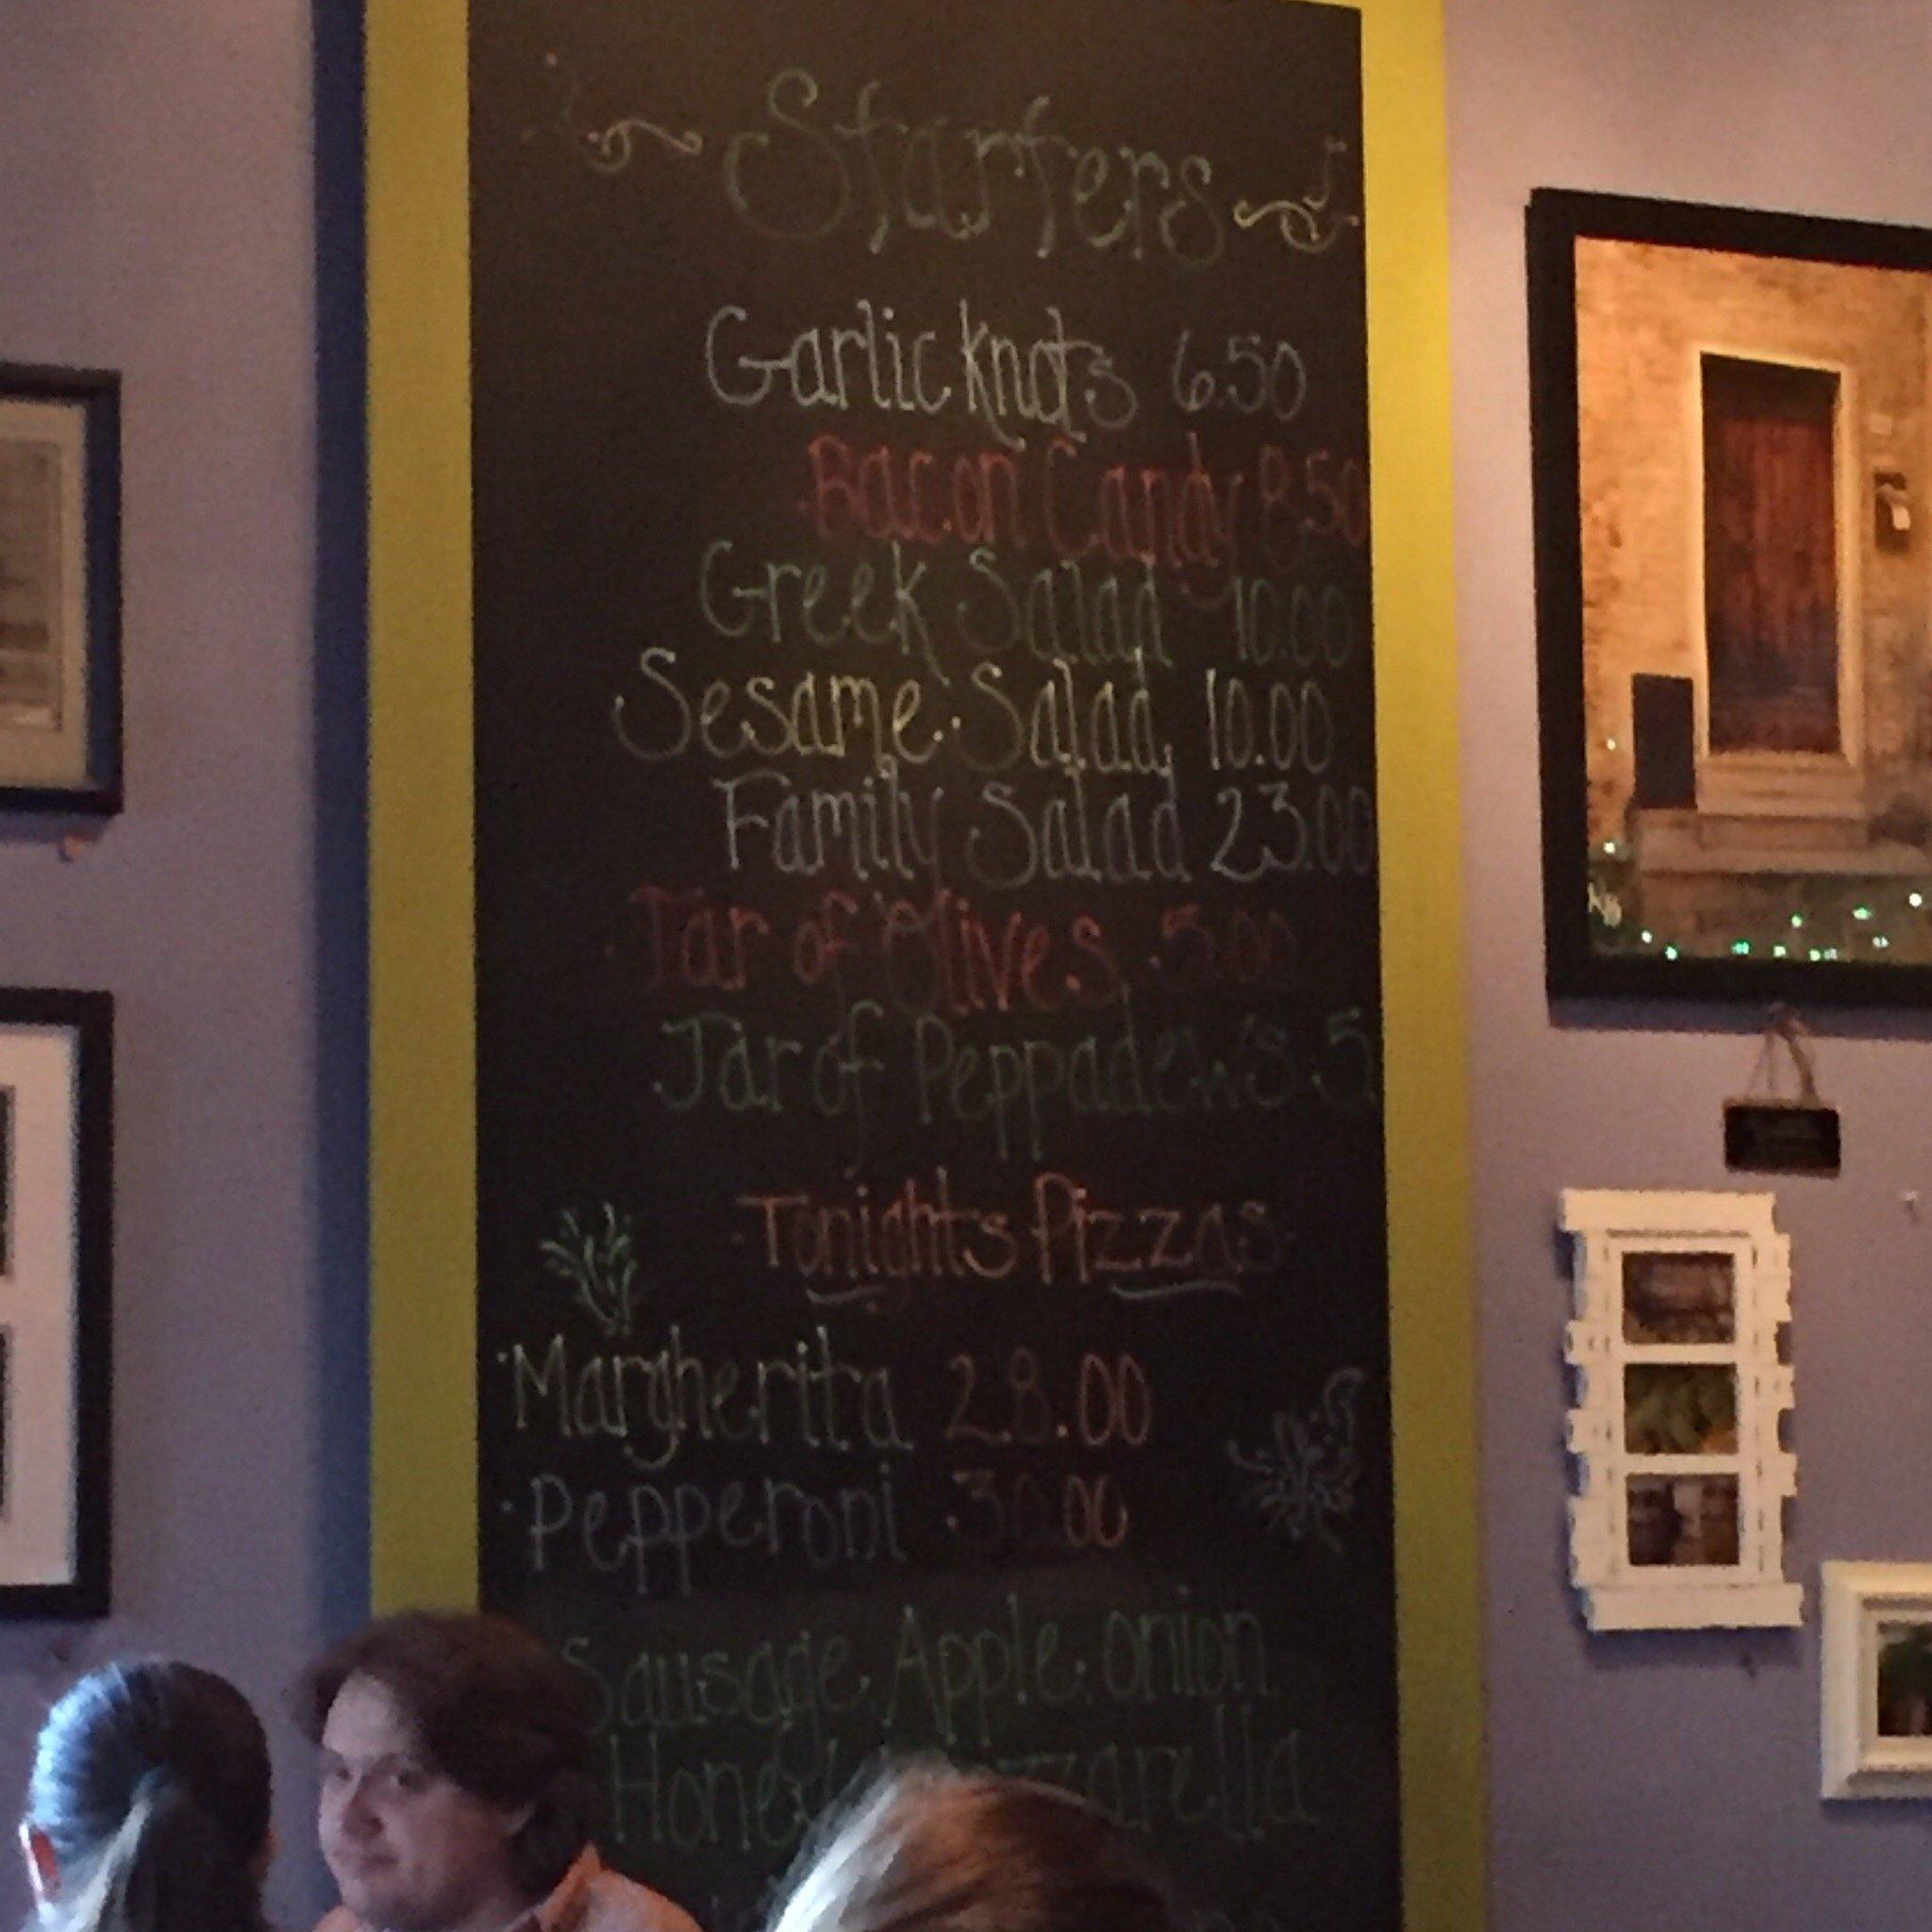 Starters
Garlic knots 6.50
Bacon Candy 8.50
Greek Salad 10.00
Sesame Salad 10.00
Family Salad 23.00
Jar of Olives 5.00
Jar of Peppadew's 5
Tonights Pizzas
Margherita 28.00
Pepperoni 30.00
Sausage Apple onion
Honey